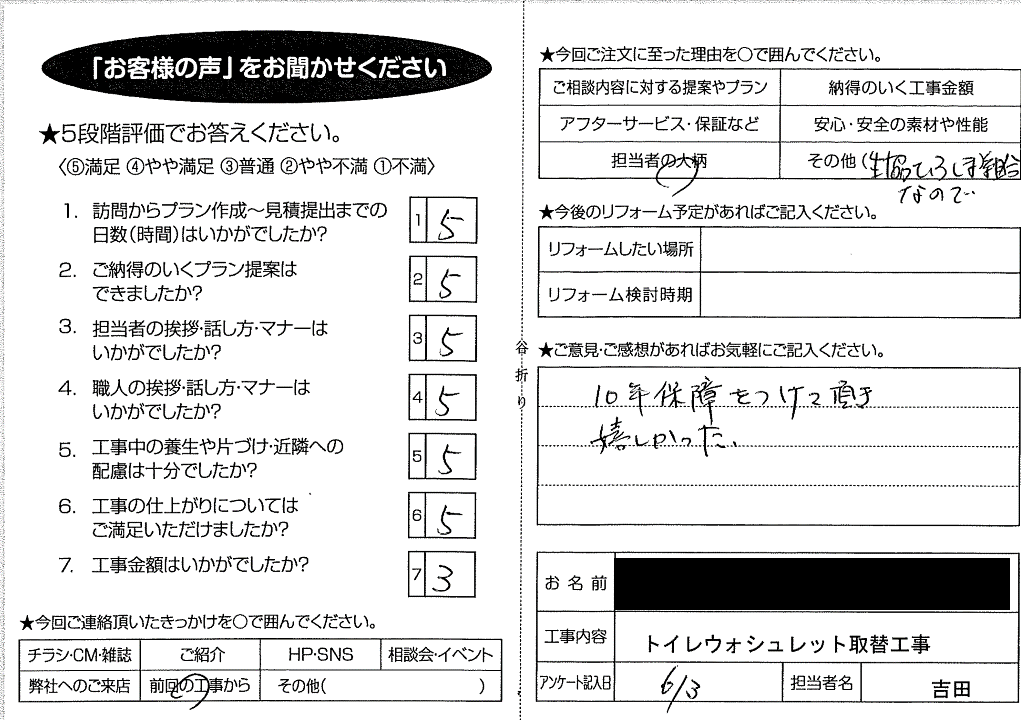 「お客様の声」をお聞かせください
★5段階評価でお答えください。
〈⑤満足 ④やや満足 ③普通 ②やや不満 ①不満〉
1. 訪問からプラン作成〜見積提出までの
日数(時間)はいかがでしたか?
1 5
2. ご納得のいくプラン提案は
できましたか?
2 5
3. 担当者の挨拶・話し方・マナーは
いかがでしたか?
3 5
4. 職人の挨拶・話し方・マナーは
いかがでしたか?
4 5
5. 工事中の養生や片づけ・近隣への
配慮は十分でしたか?
5 5
6. 工事の仕上がりについては
ご満足いただけましたか?
6 5
7. 工事金額はいかがでしたか?
7 3
★今回ご連絡頂いたきっかけを〇で囲んでください。
チラシ・CM・雑誌 ご紹介 HP・SNS 相談会・イベント
弊社へのご来店 前回の工事から その他( )
谷折り
★今回ご注文に至った理由を〇で囲んでください。
ご相談内容に対する提案やプラン 納得のいく工事金額
アフターサービス・保証など 安心・安全の素材や性能
担当者の人柄 その他(生協ひろしま組合
なので
★今後のリフォーム予定があればご記入ください。
リフォームしたい場所
リフォーム検討時期
★ご意見・ご感想があればお気軽にご記入ください。
10年保障をつけて頂き
嬉しかった。
お名前
工事内容 トイレウォシュレット取替工事
アンケート記入日 6/3 担当者名 吉田